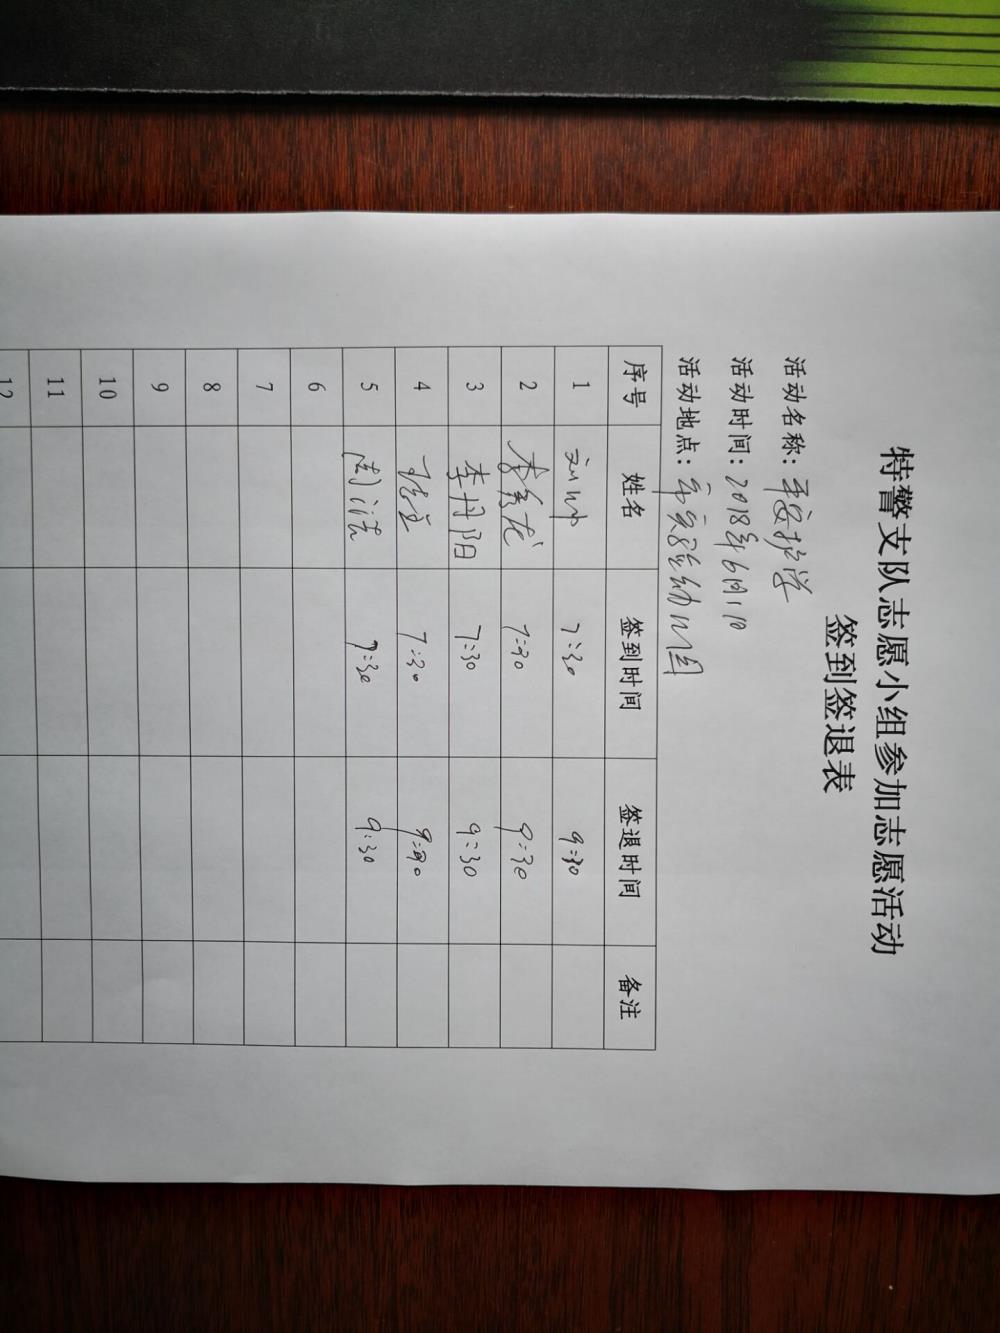 特警支队志愿小组参加志愿活动
签到签退表
活动名称：平安护学
活动时间：2018年6月1日
活动地点：市实验幼儿园
序号 姓名 签到时间 签退时间 备注
1 7:30 9:30
2 李秀龙 7:30 9:30
3 李丹阳 7:30 9:30
4 7:30 9:30
5 7:30 9:30
6
7
8
9
10
11
12